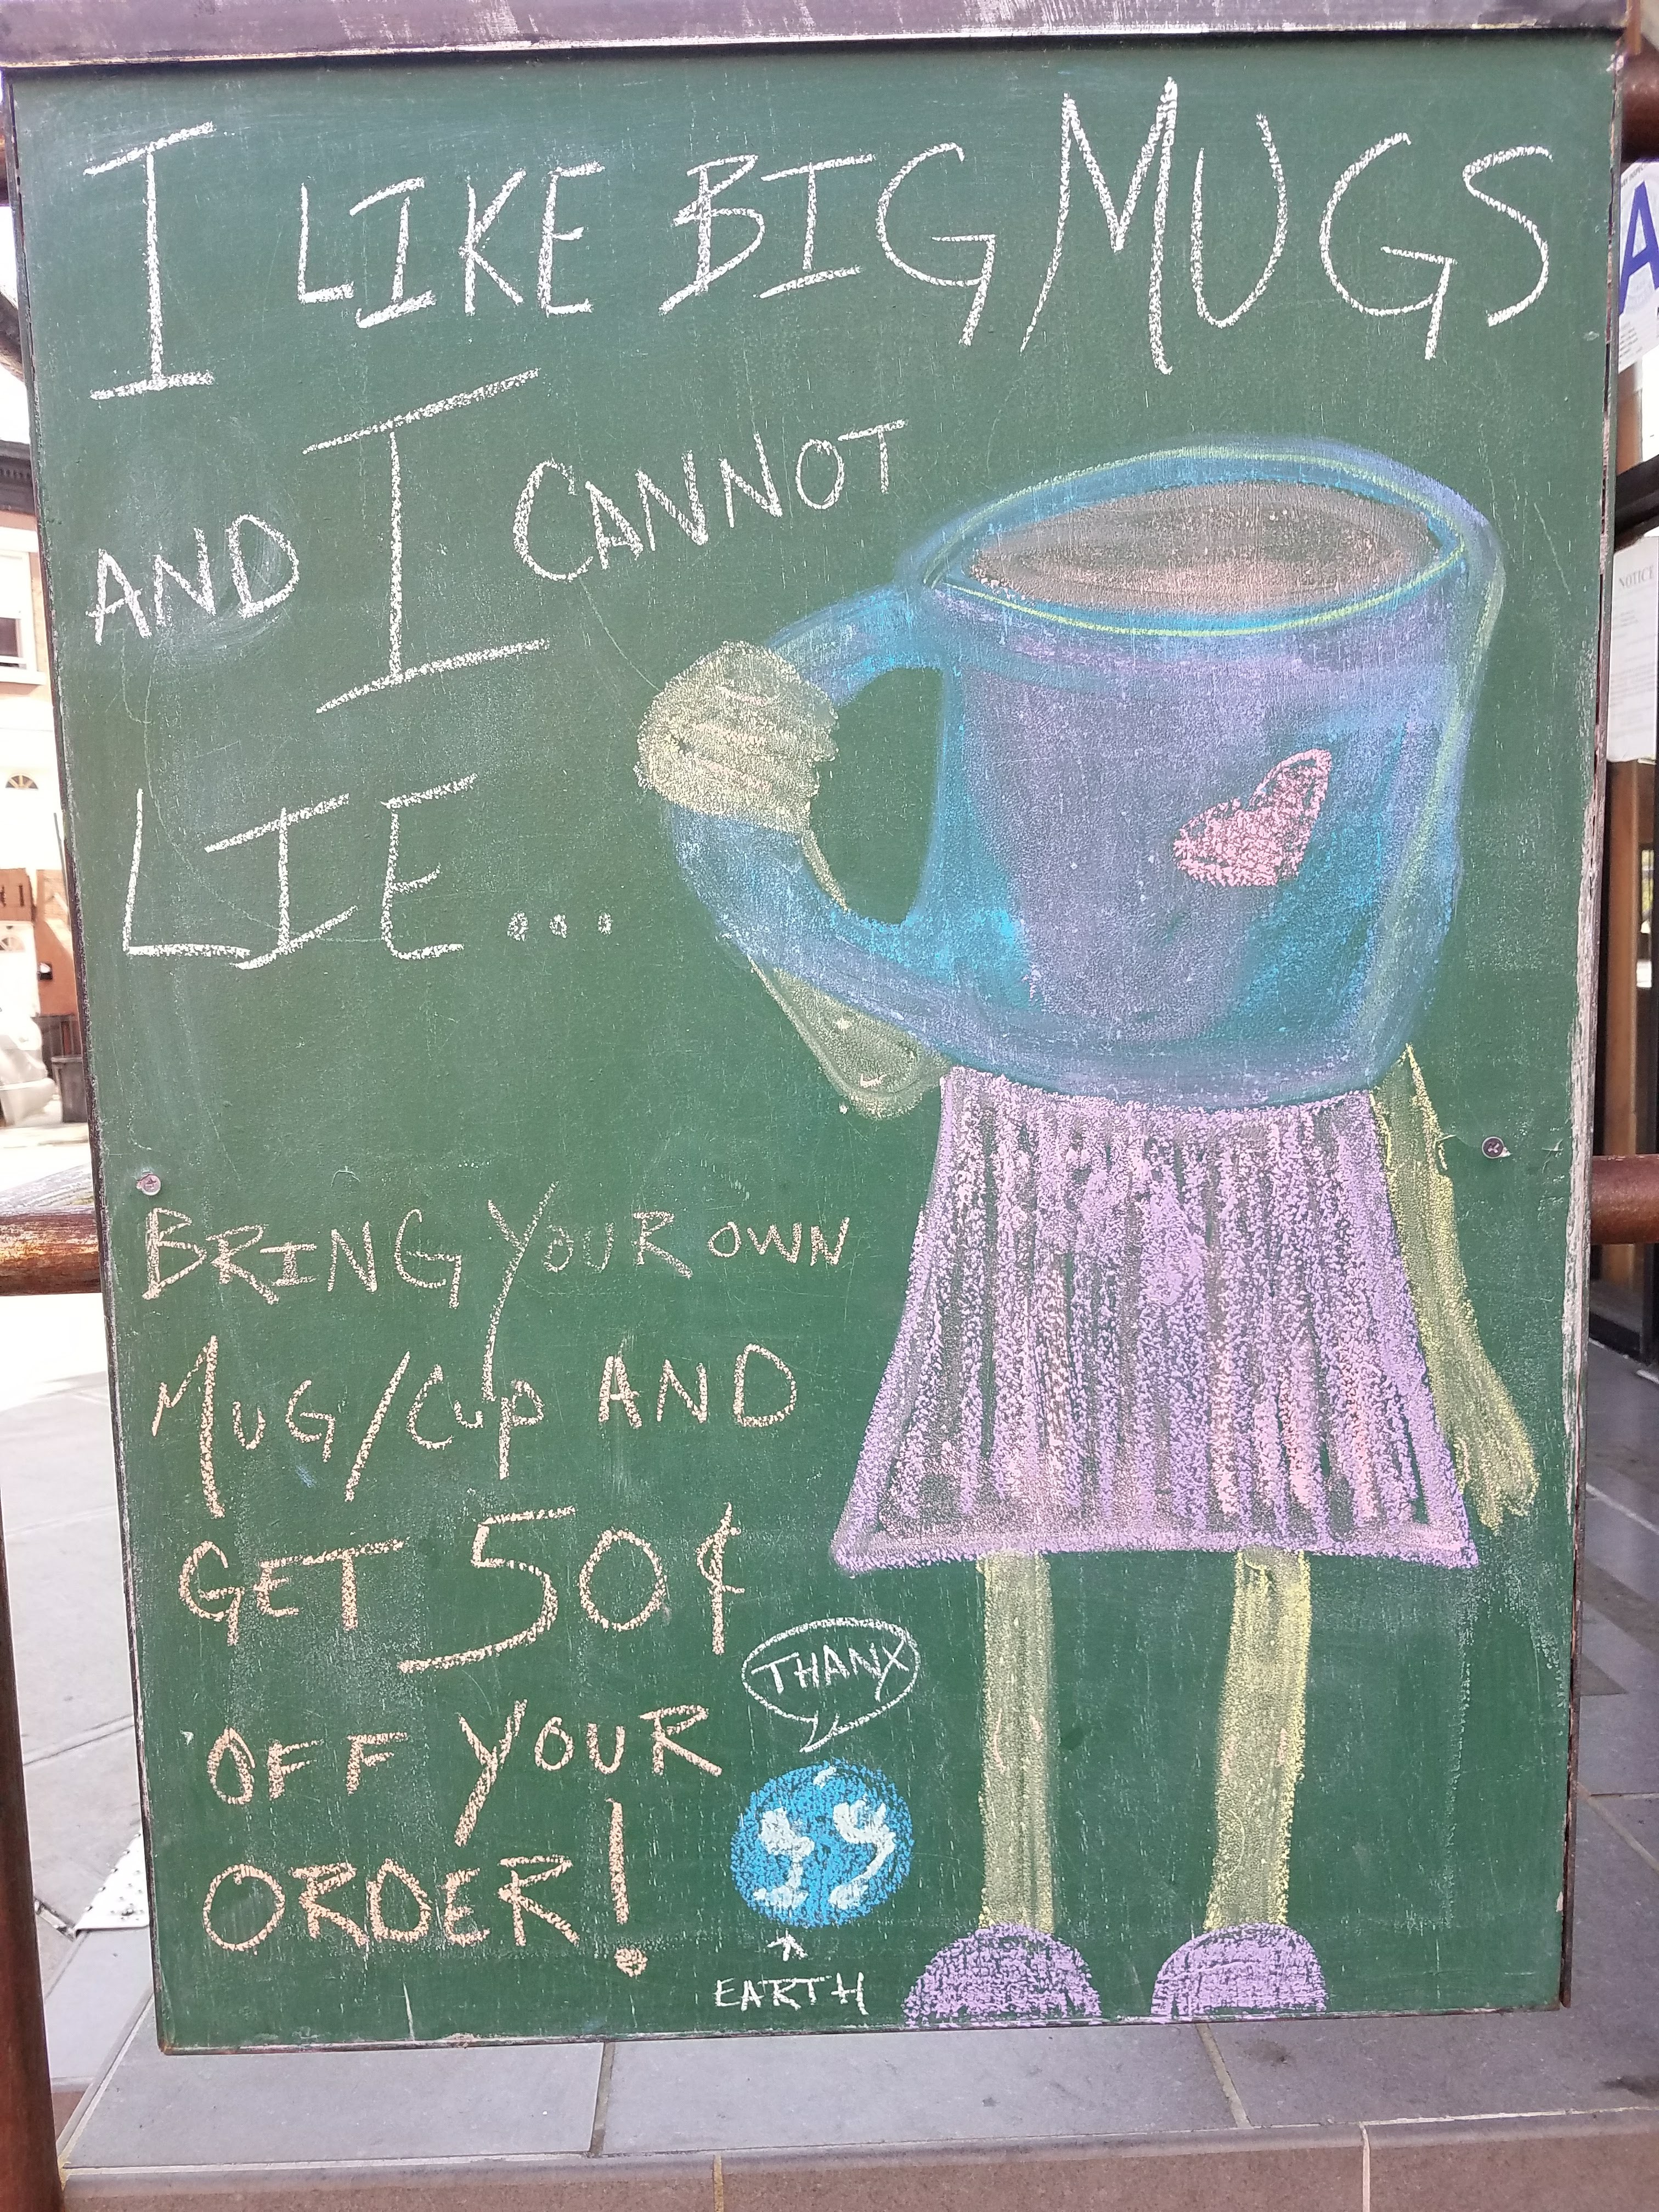 I LIKE BIG MUGS
AND I CANNOT
LIE...
BRING YOUR OWN
MUG/CUP AND
GET 50¢
OFF YOUR
ORDER!
THANX
EARTH
A
NOTICE